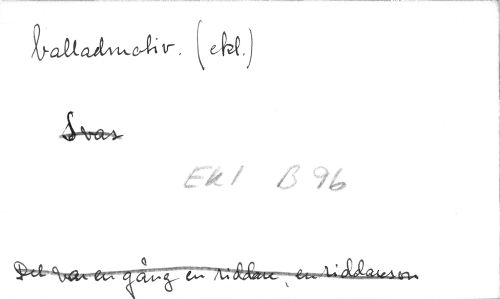 balladmotiv. (ekl.)
Svar
Ekl B 96
Det var en gång en riddare, en riddareson